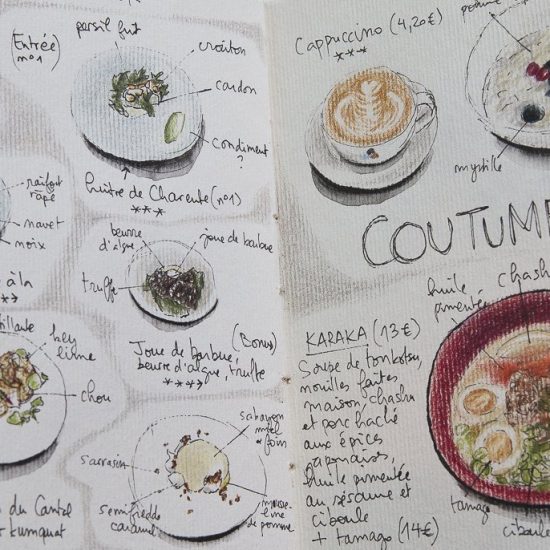 (Entrée n°1)
persil frit
croûton
cardon
condiment ?
huître de Charente (n°1)
***
raifort râpé
navet
noix
à la
beurre d'algue
joue de barbue
truffe
(Bonus)
Joue de barbue,
beurre d'algue, truffe
****
key lime
chou
du Cantal
kumquat
sabayon miel & foin
sarrasin
semifreddo caramel
mousseline de pomme
Cappuccino (4,20€)
***
myrtille
COUTUME
huile pimentée
chashu
KARAKA (13€)
Soupe de tonkotsu,
nouilles faites
maison, chashu
et porc haché
aux épices
japonaises,
huile pimentée
au sésame et
ciboule
+ tamago (14€)
tamago
ciboule